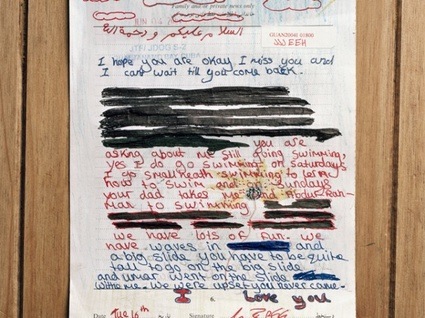 Family and or private news only
JUN 0
السلام عليكم و رحمة الله
JTFI JDOG S-2
GUAN20040
JJEEH
I hope you are okay I miss you and
I cant wait till you come back.
you are
asking about me still doing swimming,
yes I do go swimming on Saturdays
I go small Heath swimming to lern
how to swim and Sundays
your dad takes me and Abdur-Rah-
man to swimming
we have lots of fun. We
have waves in and
a big slide you have to be quite
tall to go on the big slide
and umar went on the slide
with me. We were upset you never came.
I Love you
Date Tue 16th Signature